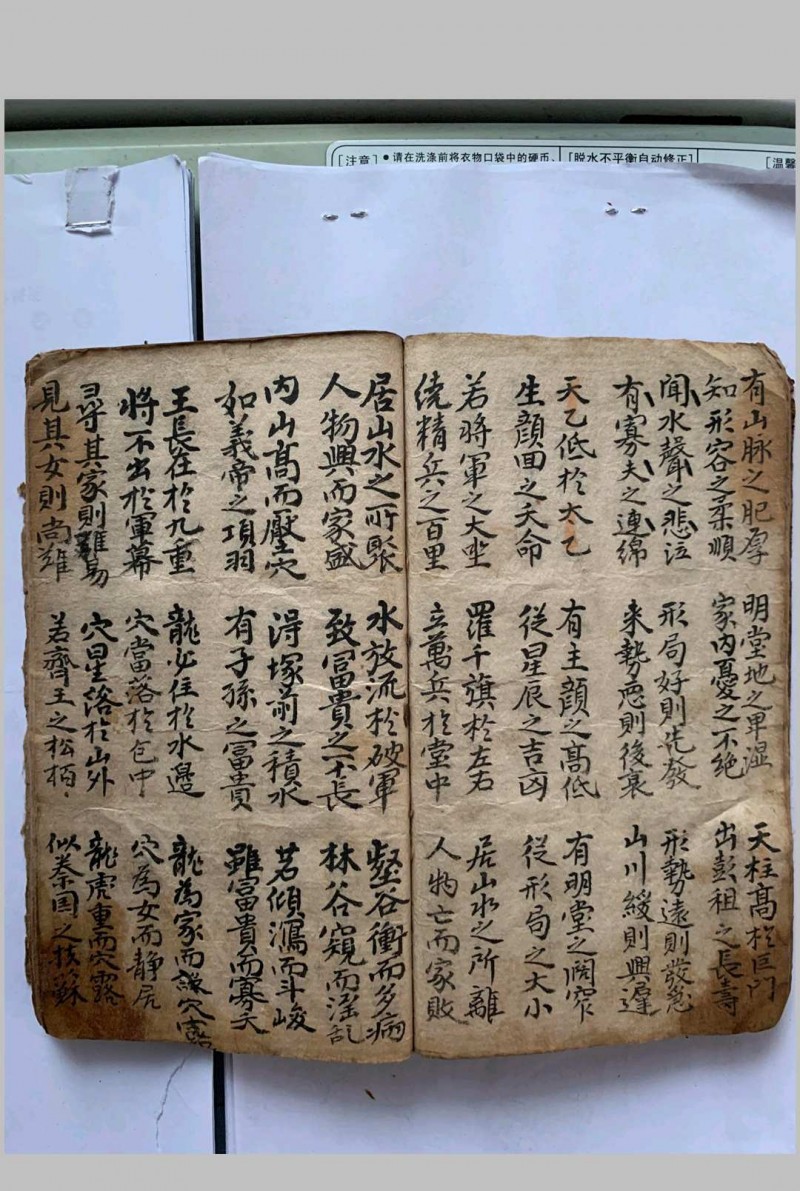 [注意] ●请在洗涤前将衣物口袋中的硬币、
[脱水不平衡自动修正]
[温馨
有山脉之肥厚
知形容之柔順
明堂地之卑湿
家内憂之不絶
天柱髙於巨門
出彭祖之長壽
聞水聲之悲泣
有寡夫之連綿
形局好則先發
来勢惡則後衰
形勢遠則發怠
山川緩則興遲
天乙低於太乙
生顔面之夭命
有主顔之髙低
従星辰之吉凶
有明堂之闊窄
従形局之大小
若將軍之大坐
统精兵之百里
羅千旗於左右
立萬兵於堂中
居山水之所離
人物亡而家敗
居山水之所聚
人物興而家盛
水放流於破軍
致冨貴之不長
壑谷衝而多病
林谷窺而淫乱
内山髙而壓穴
如義帝之項羽
浔塚前之積水
有子孫之冨貴
若傾瀉而斗峻
雖冨貴而寡夭
王長在於九重
將不出於軍幕
龍必住於水邊
穴當落於包中
龍為家而誨穴
穴為女而静居
尋其家則難易
見其女則尚難
穴星落於山外
若齊王之松栢
龍虎重而穴露
似秦国之